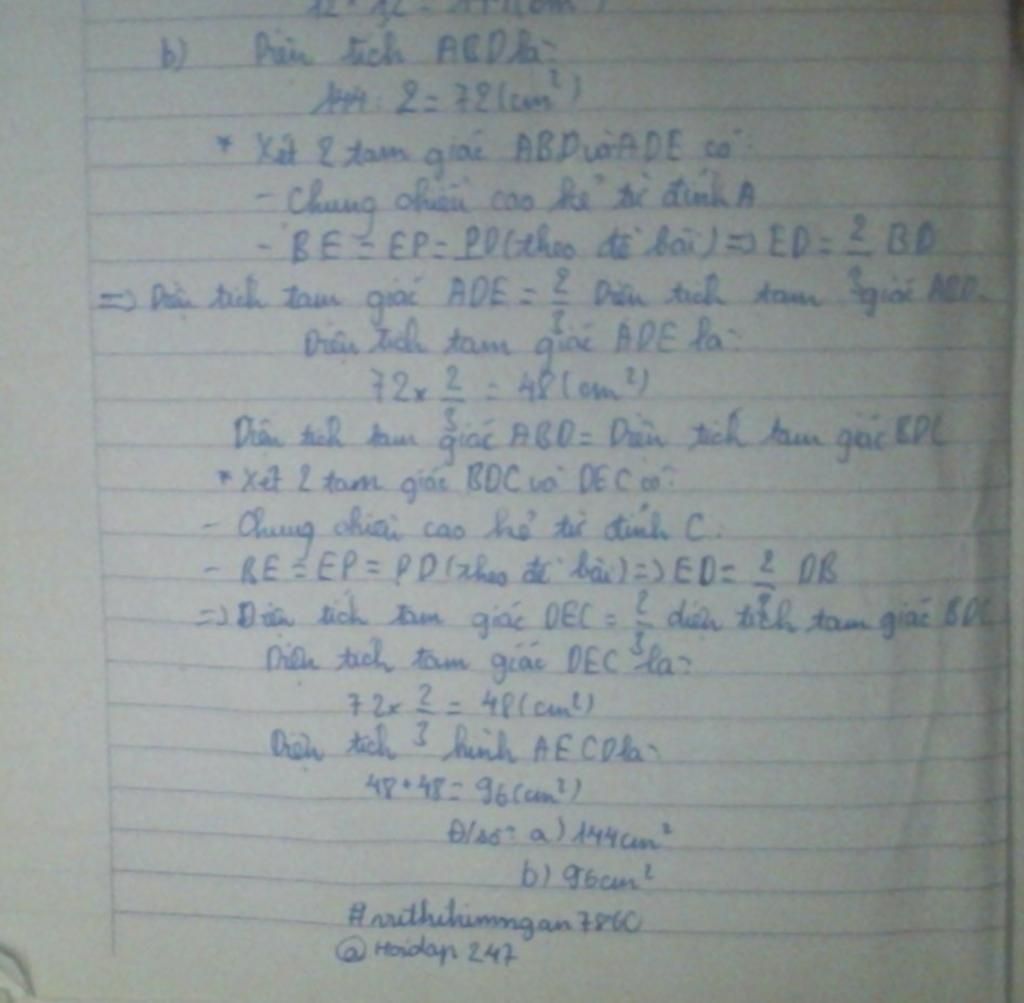 12 × 12 = 144 (cm²)
b) Diện tích ABD là:
144 : 2 = 72 (cm²)
* Xét 2 tam giác ABD và ADE có:
- Chung chiều cao kẻ từ đỉnh A
- BE = EP = PD (theo đề bài) => ED = 2/3 BD
=> Diện tích tam giác ADE = 2/3 Diện tích tam giác ABD.
Diện tích tam giác ADE là:
72 × 2/3 = 48 (cm²)
Diện tích tam giác ABD = Diện tích tam giác BDC
* Xét 2 tam giác BDC và DEC có:
- Chung chiều cao kẻ từ đỉnh C.
- BE = EP = PD (theo đề bài) => ED = 2/3 DB
=> Diện tích tam giác DEC = 2/3 diện tích tam giác BDC
Diện tích tam giác DEC là:
72 × 2/3 = 48 (cm²)
Diện tích hình AECD là:
48 + 48 = 96 (cm²)
Đ/số: a) 144cm²
b) 96cm²
@Hoidap 247